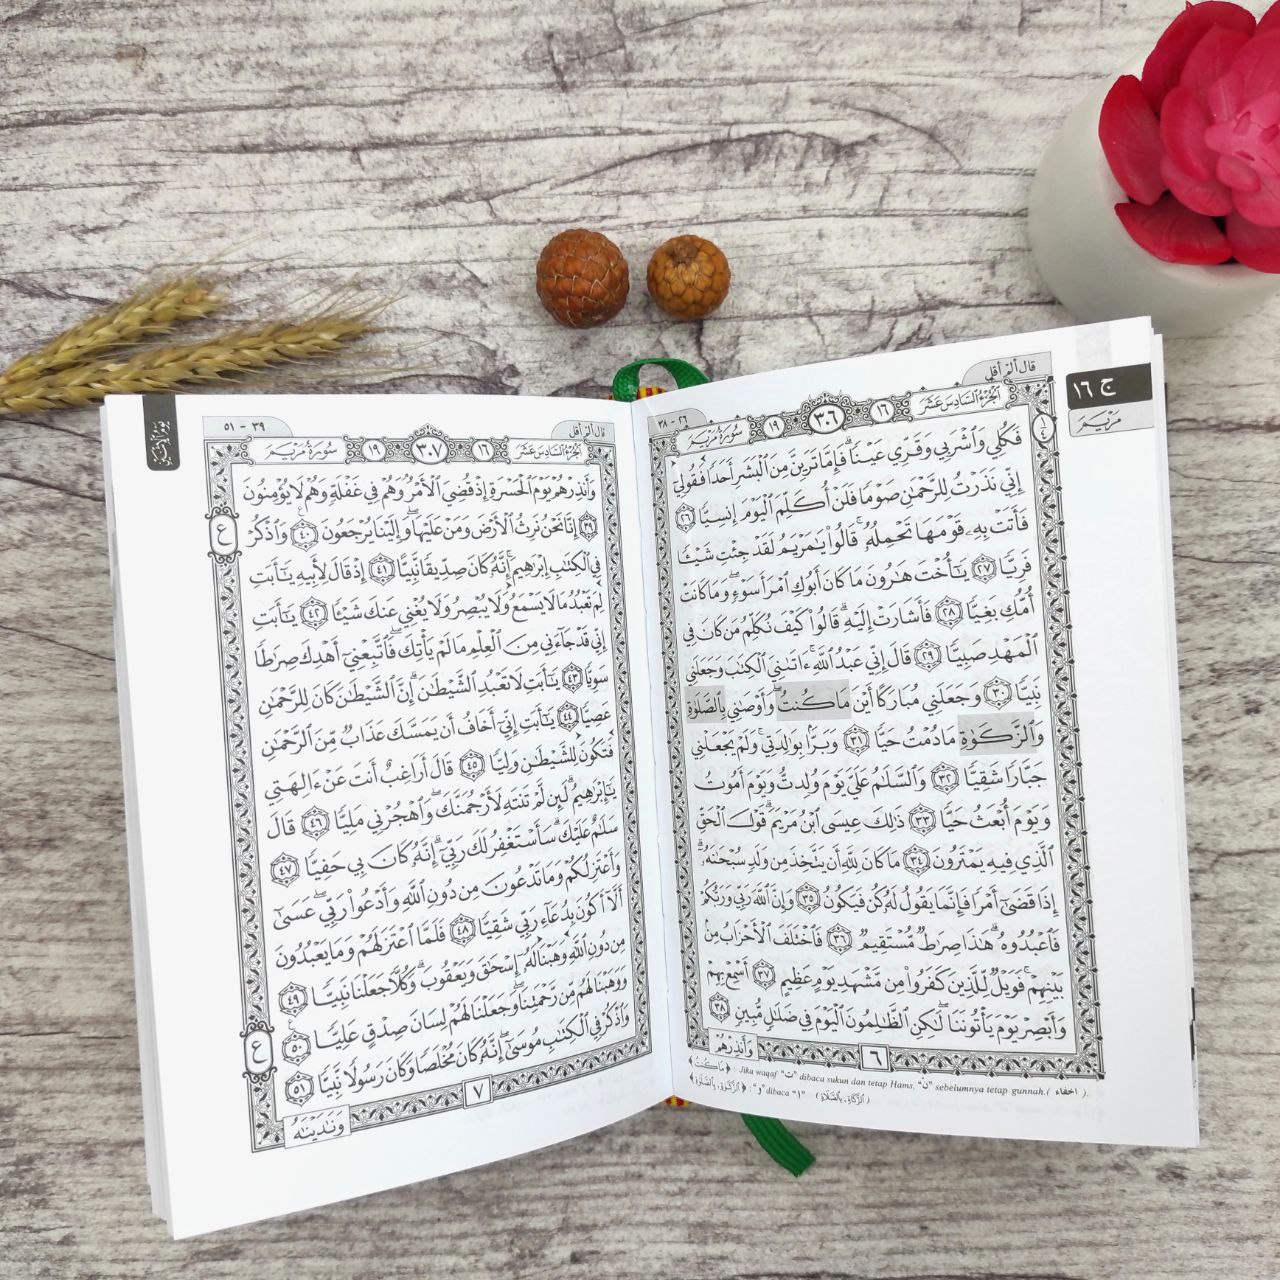 قال ألم أقل
ج ١٦
مريم
الجزء السادس عشر
١٦
٣٠٦
١٩
سورة مريم
٢٦ - ٣٨
فَكُلِي وَٱشۡرَبِي وَقَرِّي عَيۡنٗاۖ فَإِمَّا تَرَيِنَّ مِنَ ٱلۡبَشَرِ أَحَدٗا فَقُولِيٓ
إِنِّي نَذَرۡتُ لِلرَّحۡمَٰنِ صَوۡمٗا فَلَنۡ أُكَلِّمَ ٱلۡيَوۡمَ إِنسِيّٗا ٢٦
فَأَتَتۡ بِهِۦ قَوۡمَهَا تَحۡمِلُهُۥۖ قَالُواْ يَٰمَرۡيَمُ لَقَدۡ جِئۡتِ شَيۡـٔٗا
فَرِيّٗا ٢٧ يَٰٓأُخۡتَ هَٰرُونَ مَا كَانَ أَبُوكِ ٱمۡرَأَ سَوۡءٖ وَمَا كَانَتۡ
أُمُّكِ بَغِيّٗا ٢٨ فَأَشَارَتۡ إِلَيۡهِۖ قَالُواْ كَيۡفَ نُكَلِّمُ مَن كَانَ فِي
ٱلۡمَهۡدِ صَبِيّٗا ٢٩ قَالَ إِنِّي عَبۡدُ ٱللَّهِ ءَاتَىٰنِيَ ٱلۡكِتَٰبَ وَجَعَلَنِي
نَبِيّٗا ٣٠ وَجَعَلَنِي مُبَارَكًا أَيۡنَ مَا كُنتُ وَأَوۡصَٰنِي بِٱلصَّلَوٰةِ
وَٱلزَّكَوٰةِ مَا دُمۡتُ حَيّٗا ٣١ وَبَرَّۢا بِوَٰلِدَتِي وَلَمۡ يَجۡعَلۡنِي
جَبَّارٗا شَقِيّٗا ٣٢ وَٱلسَّلَٰمُ عَلَيَّ يَوۡمَ وُلِدتُّ وَيَوۡمَ أَمُوتُ
وَيَوۡمَ أُبۡعَثُ حَيّٗا ٣٣ ذَٰلِكَ عِيسَى ٱبۡنُ مَرۡيَمَۖ قَوۡلَ ٱلۡحَقِّ
ٱلَّذِي فِيهِ يَمۡتَرُونَ ٣٤ مَا كَانَ لِلَّهِ أَن يَتَّخِذَ مِن وَلَدٖۖ سُبۡحَٰنَهُۥٓۚ
إِذَا قَضَىٰٓ أَمۡرٗا فَإِنَّمَا يَقُولُ لَهُۥ كُن فَيَكُونُ ٣٥ وَإِنَّ ٱللَّهَ رَبِّي وَرَبُّكُمۡ
فَٱعۡبُدُوهُۚ هَٰذَا صِرَٰطٞ مُّسۡتَقِيمٞ ٣٦ فَٱخۡتَلَفَ ٱلۡأَحۡزَابُ مِنۢ
بَيۡنِهِمۡۖ فَوَيۡلٞ لِّلَّذِينَ كَفَرُواْ مِن مَّشۡهَدِ يَوۡمٍ عَظِيمٍ ٣٧ أَسۡمِعۡ بِهِمۡ
وَأَبۡصِرۡ يَوۡمَ يَأۡتُونَنَا لَٰكِنِ ٱلظَّٰلِمُونَ ٱلۡيَوۡمَ فِي ضَلَٰلٖ مُّبِينٖ ٣٨
٦
وَأَنذِرۡهُمۡ
﴿مَا كُنتُ﴾ : Jika waqaf "ت" dibaca sukun dan tetap Hams, "ن" sebelumnya tetap gunnah.( اخفاء ).
﴿الزَّكَوٰةِ، بِالصَّلَوٰةِ﴾ : "و" dibaca "ا" (الزَّكَاةِ، بِالصَّلَاةِ)
قال ألم أقل
الجزء السادس عشر
١٦
٣٠٧
١٩
سورة مريم
٣٩ - ٥١
وَأَنذِرۡهُمۡ يَوۡمَ ٱلۡحَسۡرَةِ إِذۡ قُضِيَ ٱلۡأَمۡرُ وَهُمۡ فِي غَفۡلَةٖ وَهُمۡ لَا يُؤۡمِنُونَ
٣٩ إِنَّا نَحۡنُ نَرِثُ ٱلۡأَرۡضَ وَمَنۡ عَلَيۡهَا وَإِلَيۡنَا يُرۡجَعُونَ ٤٠ وَٱذۡكُرۡ
فِي ٱلۡكِتَٰبِ إِبۡرَٰهِيمَۚ إِنَّهُۥ كَانَ صِدِّيقٗا نَّبِيًّا ٤١ إِذۡ قَالَ لِأَبِيهِ يَٰٓأَبَتِ
لِمَ تَعۡبُدُ مَا لَا يَسۡمَعُ وَلَا يُبۡصِرُ وَلَا يُغۡنِي عَنكَ شَيۡـٔٗا ٤٢ يَٰٓأَبَتِ
إِنِّي قَدۡ جَآءَنِي مِنَ ٱلۡعِلۡمِ مَا لَمۡ يَأۡتِكَ فَٱتَّبِعۡنِيٓ أَهۡدِكَ صِرَٰطٗا
سَوِيّٗا ٤٣ يَٰٓأَبَتِ لَا تَعۡبُدِ ٱلشَّيۡطَٰنَۖ إِنَّ ٱلشَّيۡطَٰنَ كَانَ لِلرَّحۡمَٰنِ
عَصِيّٗا ٤٤ يَٰٓأَبَتِ إِنِّيٓ أَخَافُ أَن يَمَسَّكَ عَذَابٞ مِّنَ ٱلرَّحۡمَٰنِ
فَتَكُونَ لِلشَّيۡطَٰنِ وَلِيّٗا ٤٥ قَالَ أَرَاغِبٌ أَنتَ عَنۡ ءَالِهَتِي
يَٰٓإِبۡرَٰهِيمُۖ لَئِن لَّمۡ تَنتَهِ لَأَرۡجُمَنَّكَۖ وَٱهۡجُرۡنِي مَلِيّٗا ٤٦ قَالَ
سَلَٰمٌ عَلَيۡكَۖ سَأَسۡتَغۡفِرُ لَكَ رَبِّيٓۖ إِنَّهُۥ كَانَ بِي حَفِيّٗا ٤٧
وَأَعۡتَزِلُكُمۡ وَمَا تَدۡعُونَ مِن دُونِ ٱللَّهِ وَأَدۡعُواْ رَبِّي عَسَىٰٓ
أَلَّآ أَكُونَ بِدُعَآءِ رَبِّي شَقِيّٗا ٤٨ فَلَمَّا ٱعۡتَزَلَهُمۡ وَمَا يَعۡبُدُونَ
مِن دُونِ ٱللَّهِ وَهَبۡنَا لَهُۥٓ إِسۡحَٰقَ وَيَعۡقُوبَۖ وَكُلّٗا جَعَلۡنَا نَبِيّٗا ٤٩
وَوَهَبۡنَا لَهُم مِّن رَّحۡمَتِنَا وَجَعَلۡنَا لَهُمۡ لِسَانَ صِدۡقٍ عَلِيّٗا ٥٠
وَٱذۡكُرۡ فِي ٱلۡكِتَٰبِ مُوسَىٰٓۚ إِنَّهُۥ كَانَ مُخۡلَصٗا وَكَانَ رَسُولٗا نَّبِيّٗا ٥١
ع
ع
٧
وَنَٰدَيۡنَٰهُ